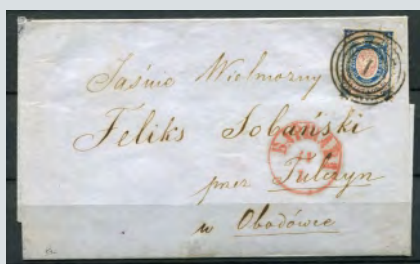 Jaśnie Wielmożny
Feliks Sobański
1
przez Tulczyn
w Obodówce